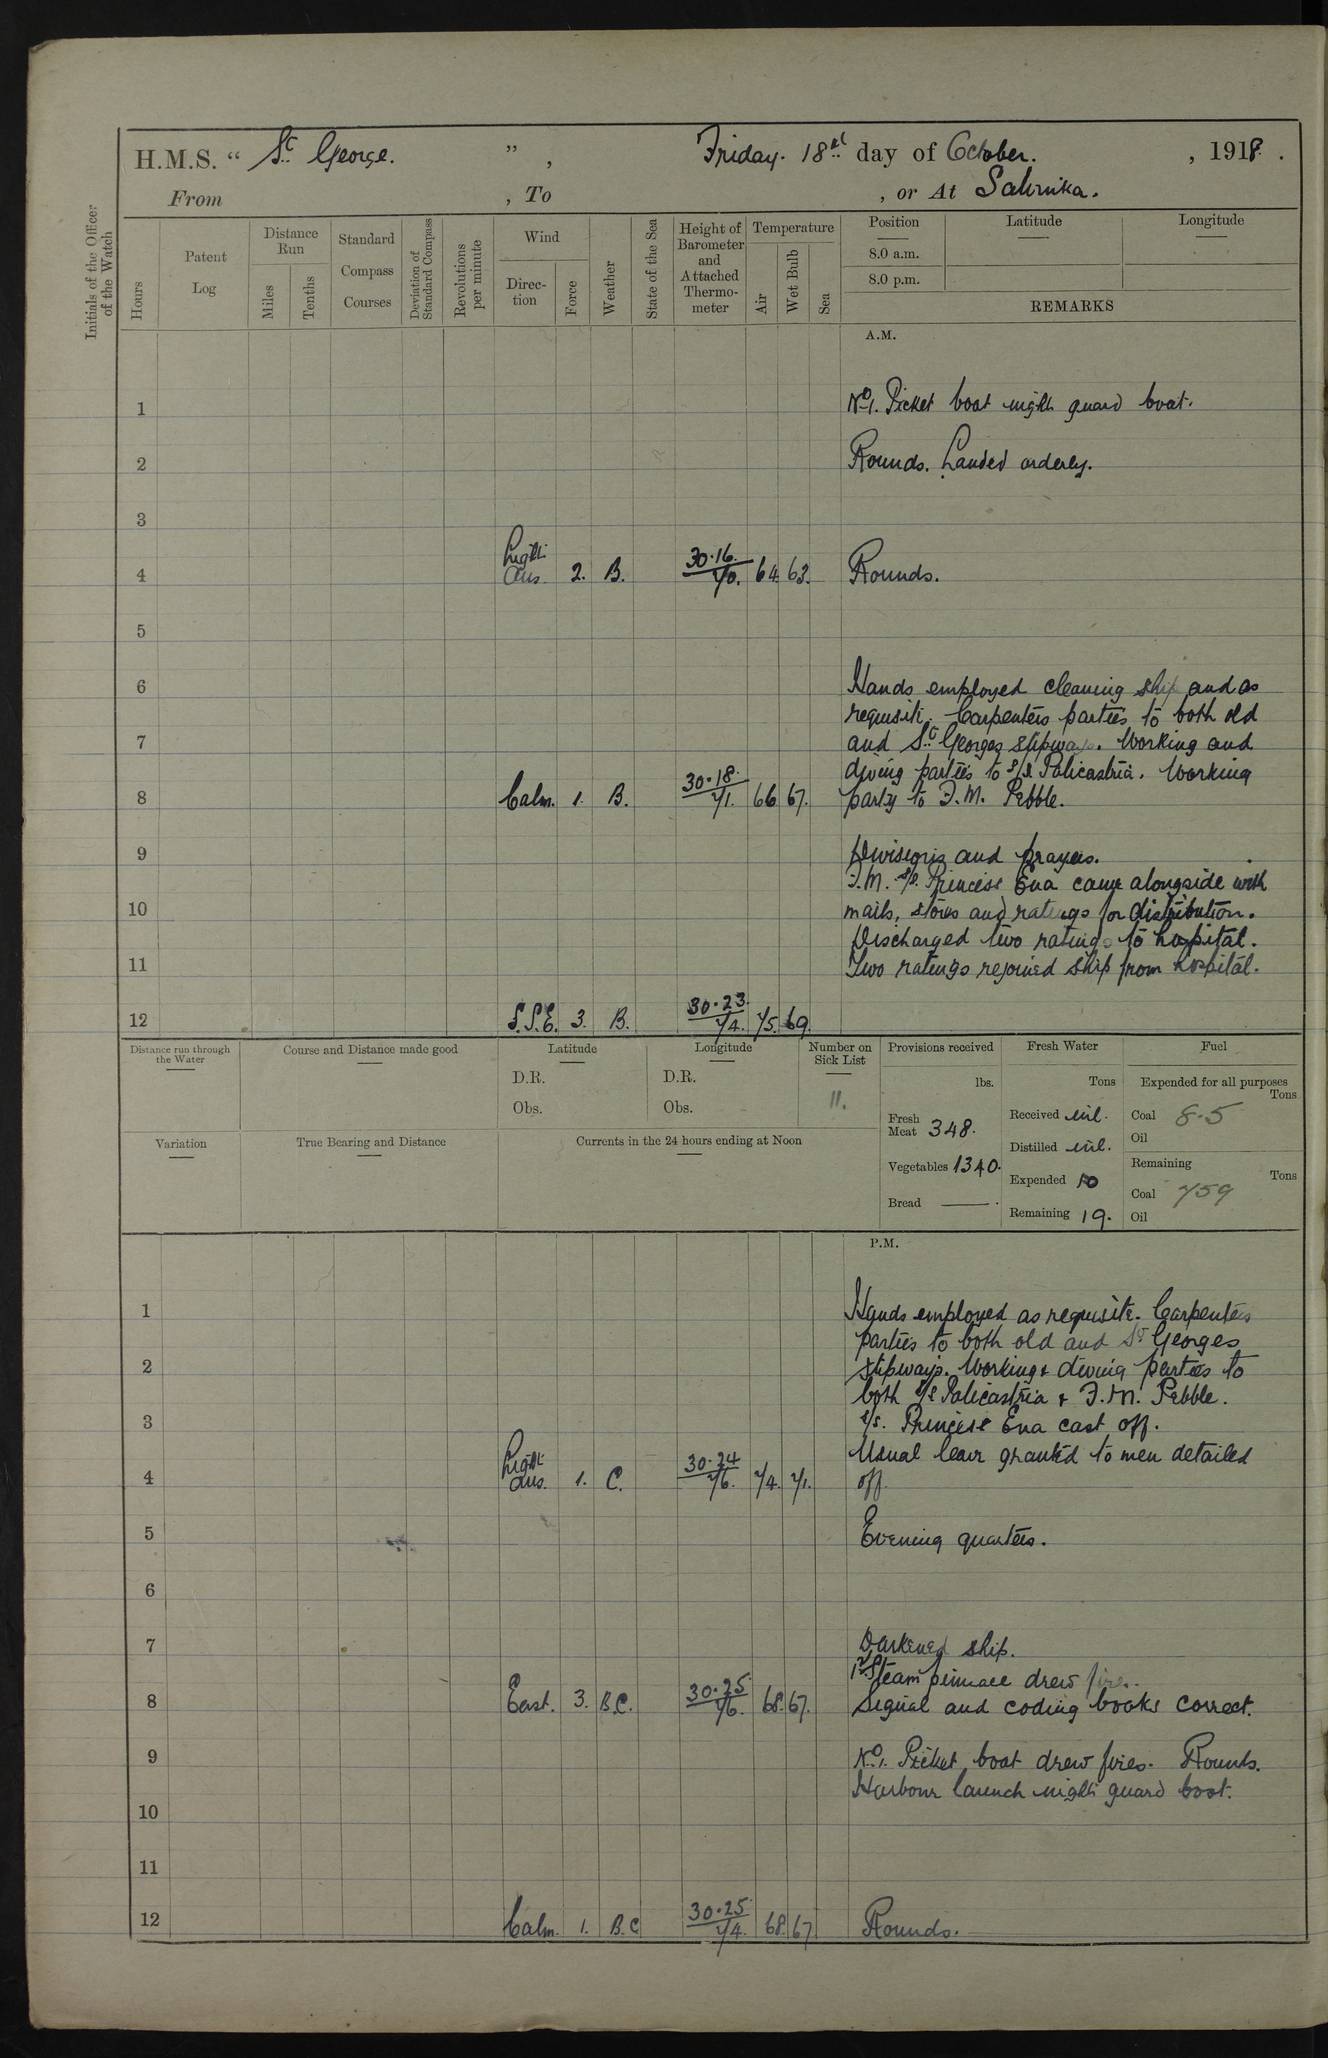 H.M.S. “ St George. ” , Friday. 18th day of October. , 1918. .
From , To , or At Salonika.
Initials of the Officer of the Watch
Hours
Patent Log
Distance Run
Miles
Tenths
Standard Compass Courses
Deviation of Standard Compass
Revolutions per minute
Wind
Direc-tion
Force
Weather
State of the Sea
Height of Barometer and Attached Thermo-meter
Temperature
Air
Wet Bulb
Sea
Position
Latitude
Longitude
8.0 a.m.
8.0 p.m.
REMARKS
A.M.
1 No 1. Picket boat night guard boat.
2 Rounds. Landed orderly.
3
4 Light airs. 2. B. 30.16. 70. 64 63. Rounds.
5
6 Hands employed cleaning ship and as
requisite. Carpenters parties to both old
7 and St Georges slipways. Working and
diving parties to S/S Policastria. Working
8 Calm. 1. B. 30.18. 71. 66 67. party to F.M. Pebble.
9 Divisions and prayers.
F.M. S/S. Princess Ena came alongside with
10 mails, stores and ratings for distribution.
Discharged two ratings to hospital.
11 Two ratings rejoined ship from hospital.
12 S.S.E. 3. B. 30.23. 74. 75. 69.
Distance run through the Water
Course and Distance made good
Latitude
D.R.
Obs.
Longitude
D.R.
Obs.
Number on Sick List
11.
Provisions received
lbs.
Fresh Meat 348.
Vegetables 1340.
Bread ——.
Fresh Water
Tons
Received nil.
Distilled nil.
Expended 10
Remaining 19.
Fuel
Expended for all purposes
Tons
Coal 8.5
Oil
Remaining
Tons
Coal 759
Oil
Variation
True Bearing and Distance
Currents in the 24 hours ending at Noon
P.M.
1 Hands employed as requisite. Carpenters
parties to both old and St Georges
2 slipways. Working & diving parties to
both S/S Policastria & F.M. Pebble.
3 S/S. Princess Ena cast off.
Usual leave granted to men detailed
4 Light airs. 1. C. 30.24 76. 74. 71. off.
5 Evening quarters.
6
7 Darkened ship.
1st Steam pinnace drew fires.
8 East. 3. B.C. 30.25. 76. 68. 67. Signal and coding books correct.
9 No 1. Picket boat drew fires. Rounds.
Harbour launch night guard boat.
10
11
12 Calm. 1. B.C 30.25. 74. 68. 67 Rounds.